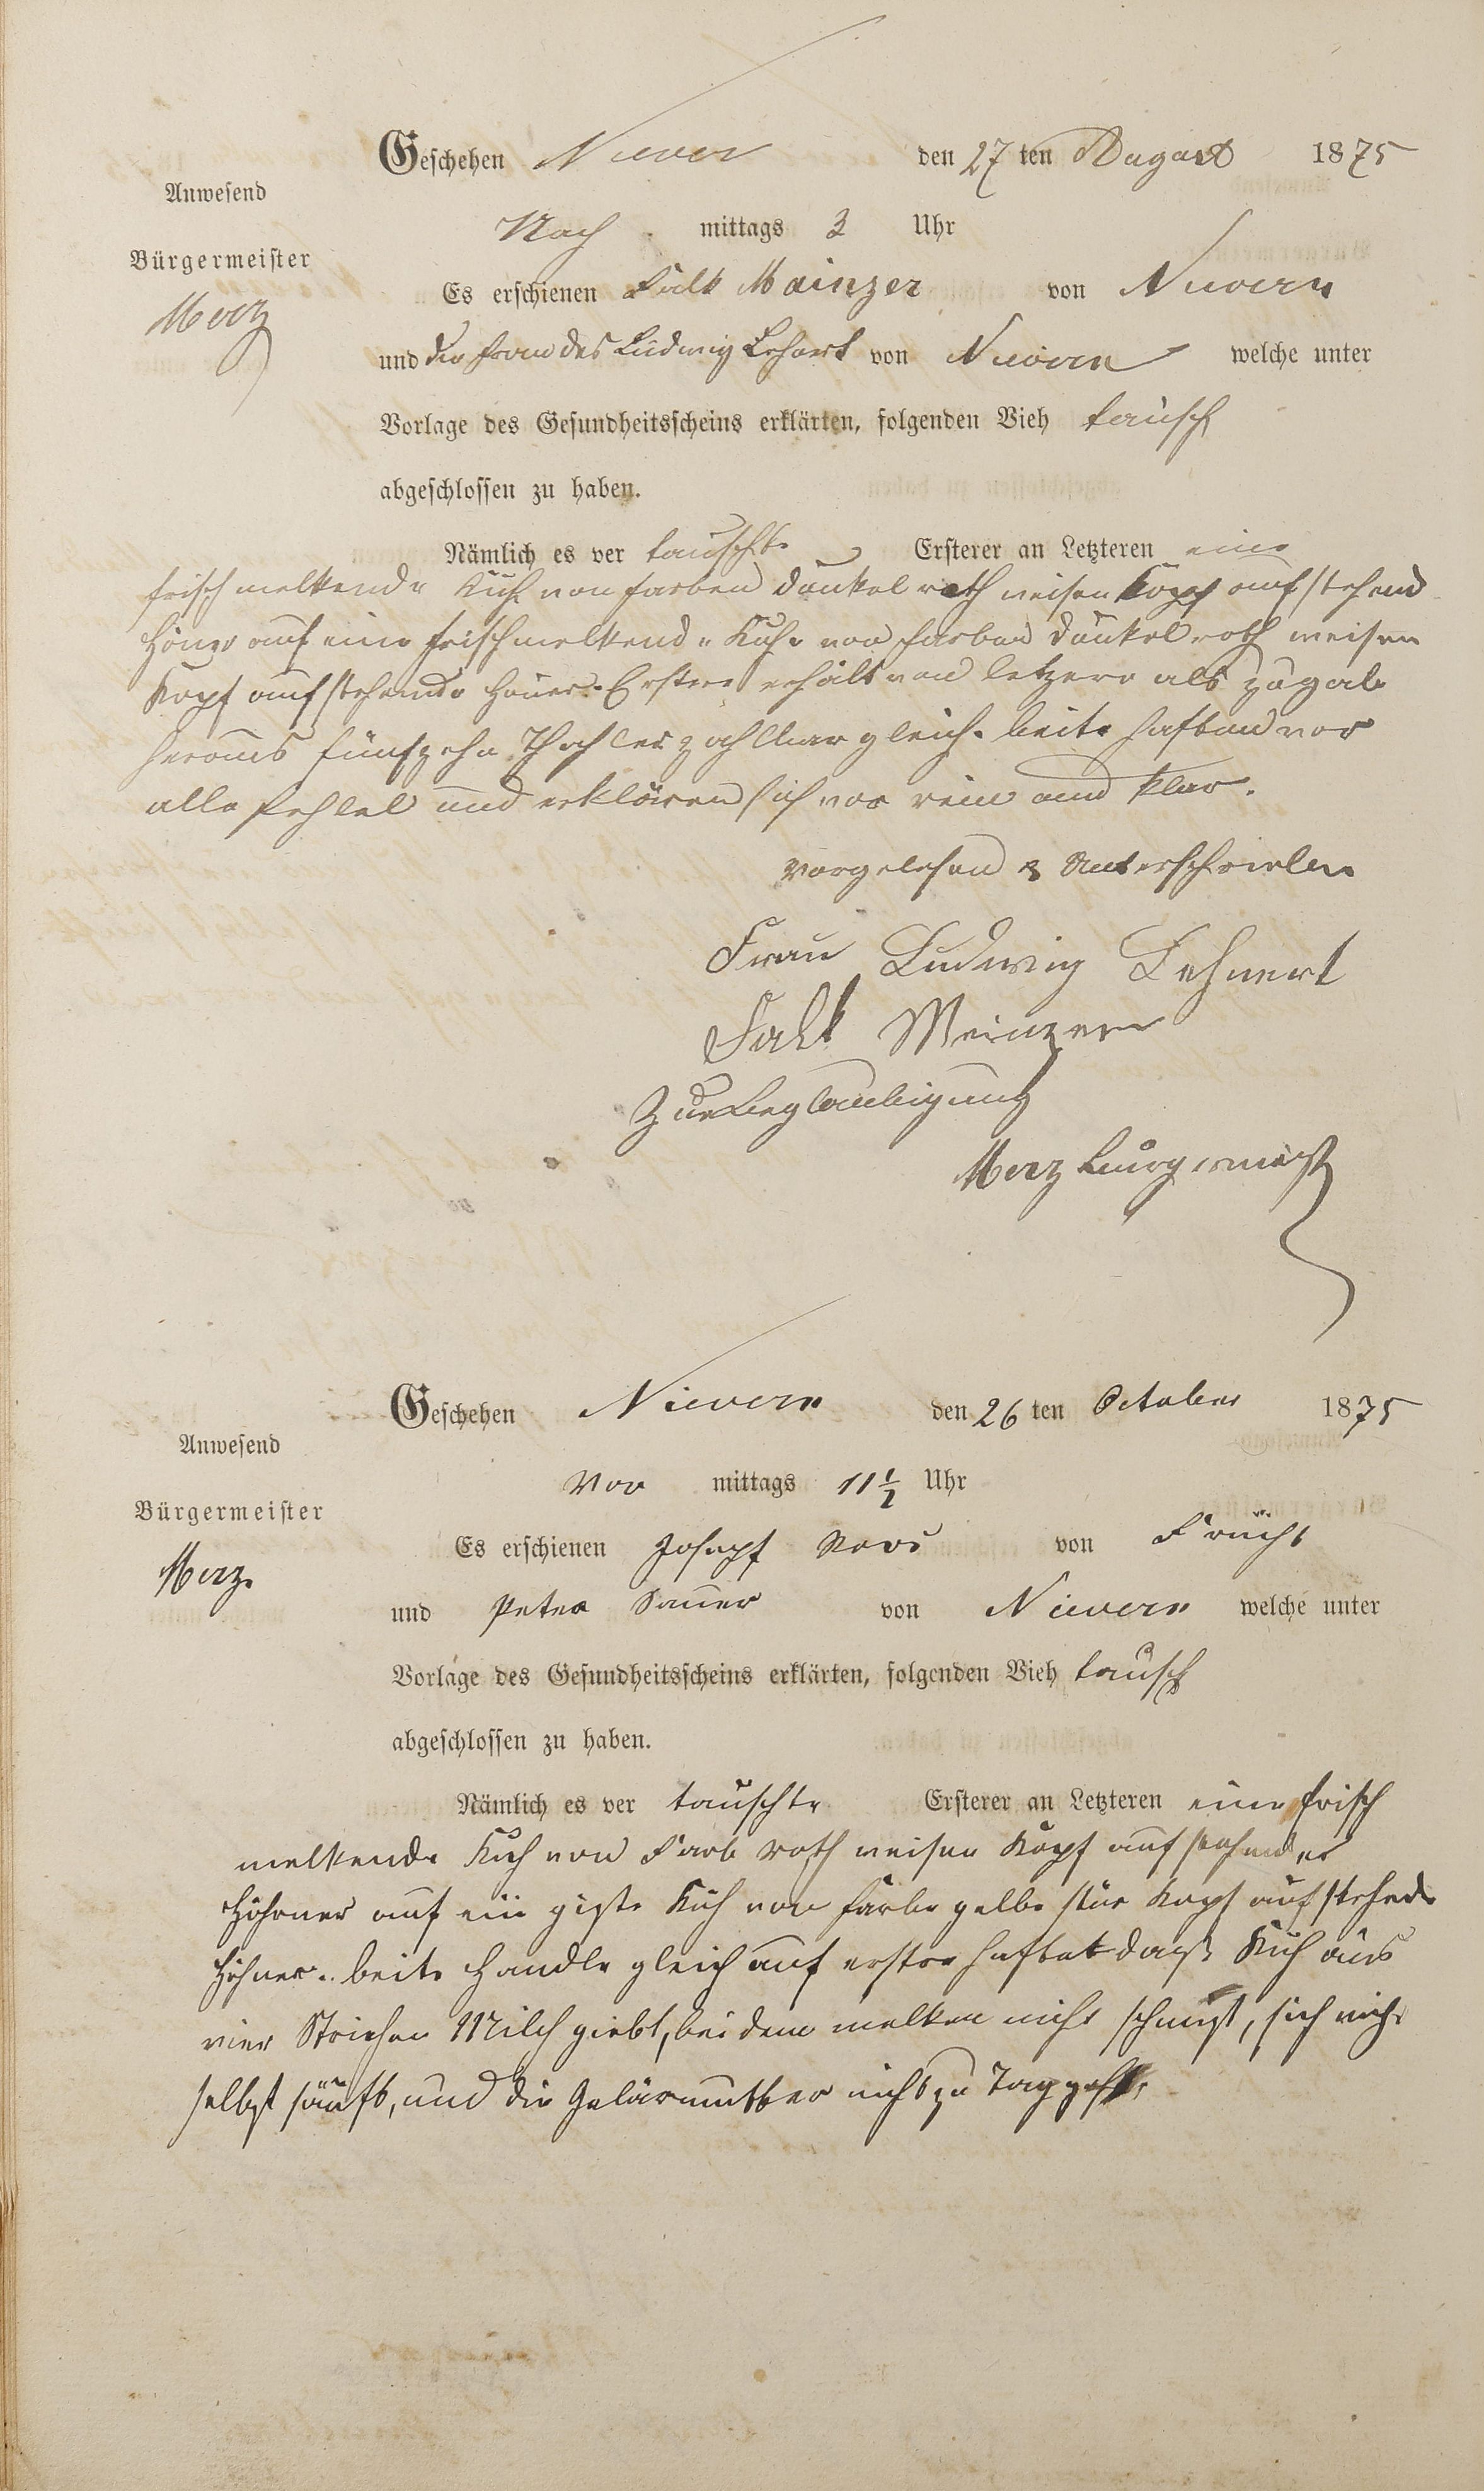 Geschehen Nievern den 27 ten August 1875
Anwesend
Nach mittags 3 Uhr
Bürgermeister
Merz
Es erschienen Falk Mainzer von Nievern
und die Frau des Ludwig Lehnert von Nievern welche unter
Vorlage des Gesundheitsscheins erklärten, folgenden Vieh tausch
abgeschlossen zu haben.
Nämlich es ver tauscht Ersterer an Letzteren eine
frisch melkende Kuh von farben dunkel roth weisen Kopf aufstehend
Höner auf eine frischmelkende Kuh von farben dunkel roth weisen
Kopf aufstehende Höner. Erster erhält von letzere als Zugab
heraus fünfzehn Thahler zahlbar gleich. beite haften vor
alle fehlel und erklären sich vor rein und klar.
Vorgelesen & Unterschrieben
Frau Ludwig Lehnert
Falk Meinzer
Zur Beglaubigung
Merz Bürgermeist
Geschehen Nievern den 26 ten October 1875
Anwesend
Vor mittags 11 1/2 Uhr
Bürgermeister
Merz
Es erschienen Joseph von Frücht
und Peter Sauer von Nievern welche unter
Vorlage des Gesundheitsscheins erklärten, folgenden Vieh tausch
abgeschlossen zu haben.
Nämlich es ver tauschte Ersterer an Letzteren eine frisch
melkende Kuh von Farb roth weisen Kopf aufstehender
Höhner auf ein giste Kuh von farbe gelbe Kopf aufstehede
Höhner. beite Handle gleich auf erster haftet daß Kuh aus
vier Strichen Milch giebt, bei dem melken nicht schmeist, sich nicht
selbst säuft, und die Gebärmutter nicht zu Tag geht.